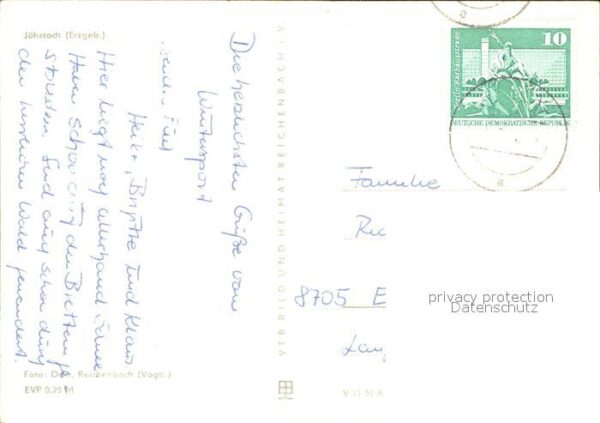 Jöhstadt (Erzgeb.)
Die herzlichsten Grüße vom
Wintersport
senden Euch
Heike, Brigitte und Klaus
Hier liegt noch allerhand Schnee
Haben schon auf den Brettern ge-
standen. Sind auch schon durch
den herrlichen Wald gewandert.
Foto: Reichenbach (Vogtl.)
EVP 0,25 M
VERBILD UND HEIMAT REICHENBACH I. V.
V 11 50 A
10
Berlin Rathausstrasse
DEUTSCHE DEMOKRATISCHE REPUBLIK
a
a
Familie
Ric
8705 E
Lan
privacy protection
Datenschutz